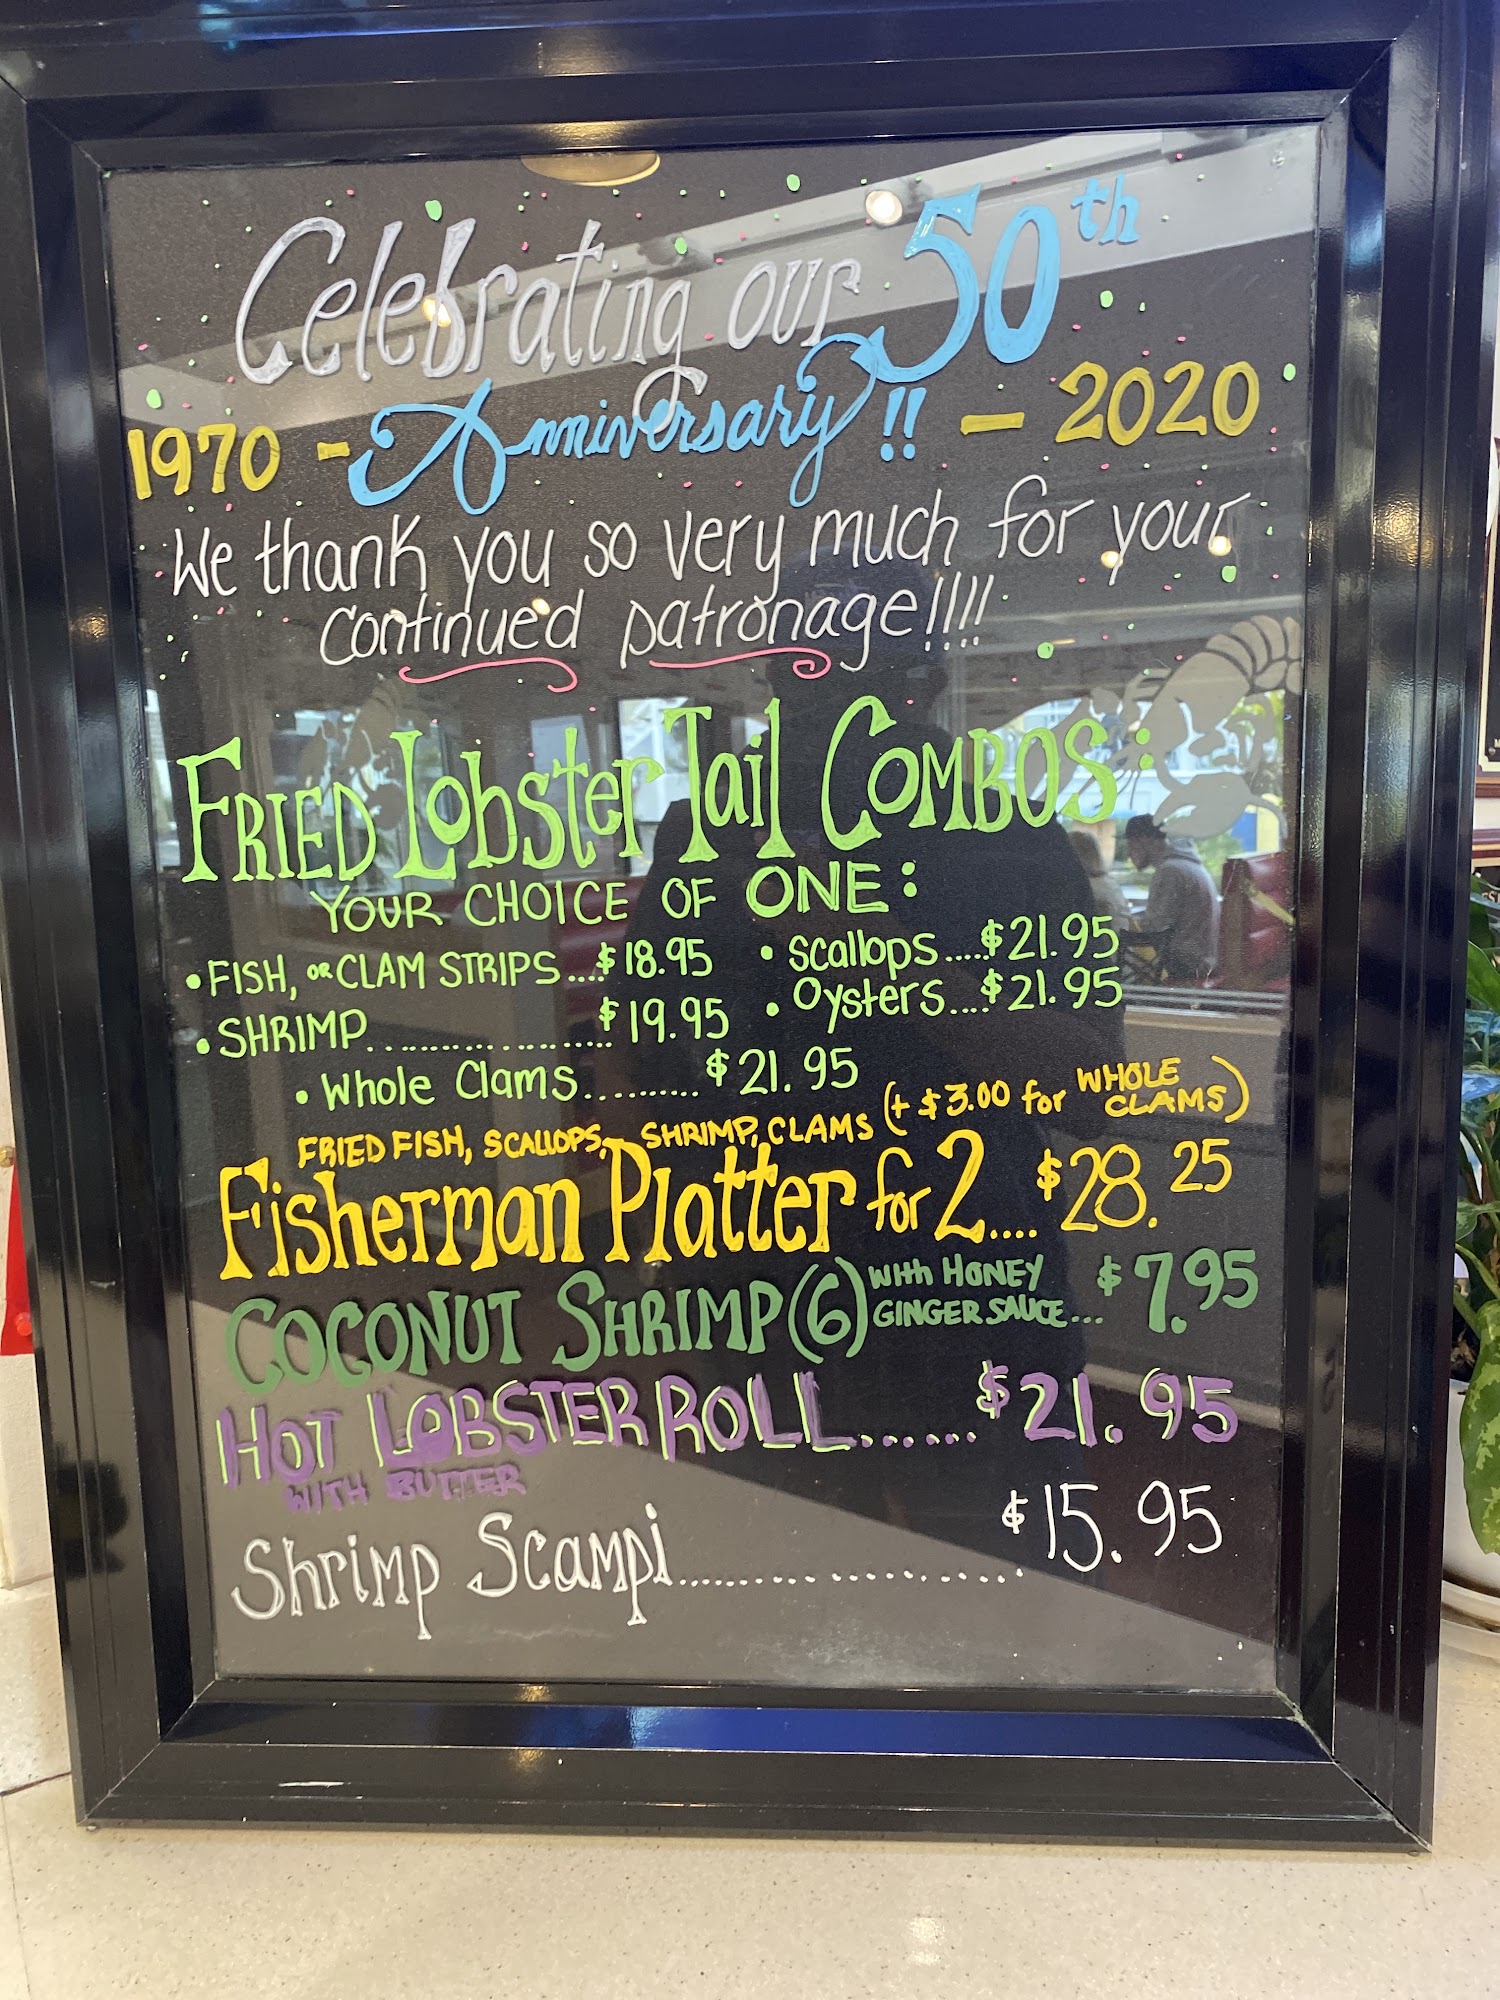 Celebrating our 50th
1970 - Anniversary!! - 2020
We thank you so very much for your
continued patronage!!!!
FRIED Lobster Tail COMBOS:
YOUR CHOICE OF ONE:
• FISH, or CLAM STRIPS...$18.95 • scallops.....$21.95
• SHRIMP..................$19.95 • Oysters....$21.95
• Whole Clams..........$21.95
FRIED FISH, SCALLOPS, SHRIMP, CLAMS (+ $3.00 for WHOLE CLAMS)
Fisherman Platter for 2....$28.25
COCONUT SHRIMP (6) WITH HONEY GINGER SAUCE...$7.95
HOT LOBSTER ROLL......$21.95
WITH BUTTER
Shrimp Scampi....................$15.95